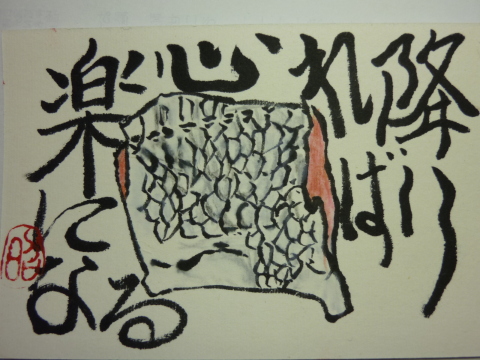 降り
れば
心
楽に
なる